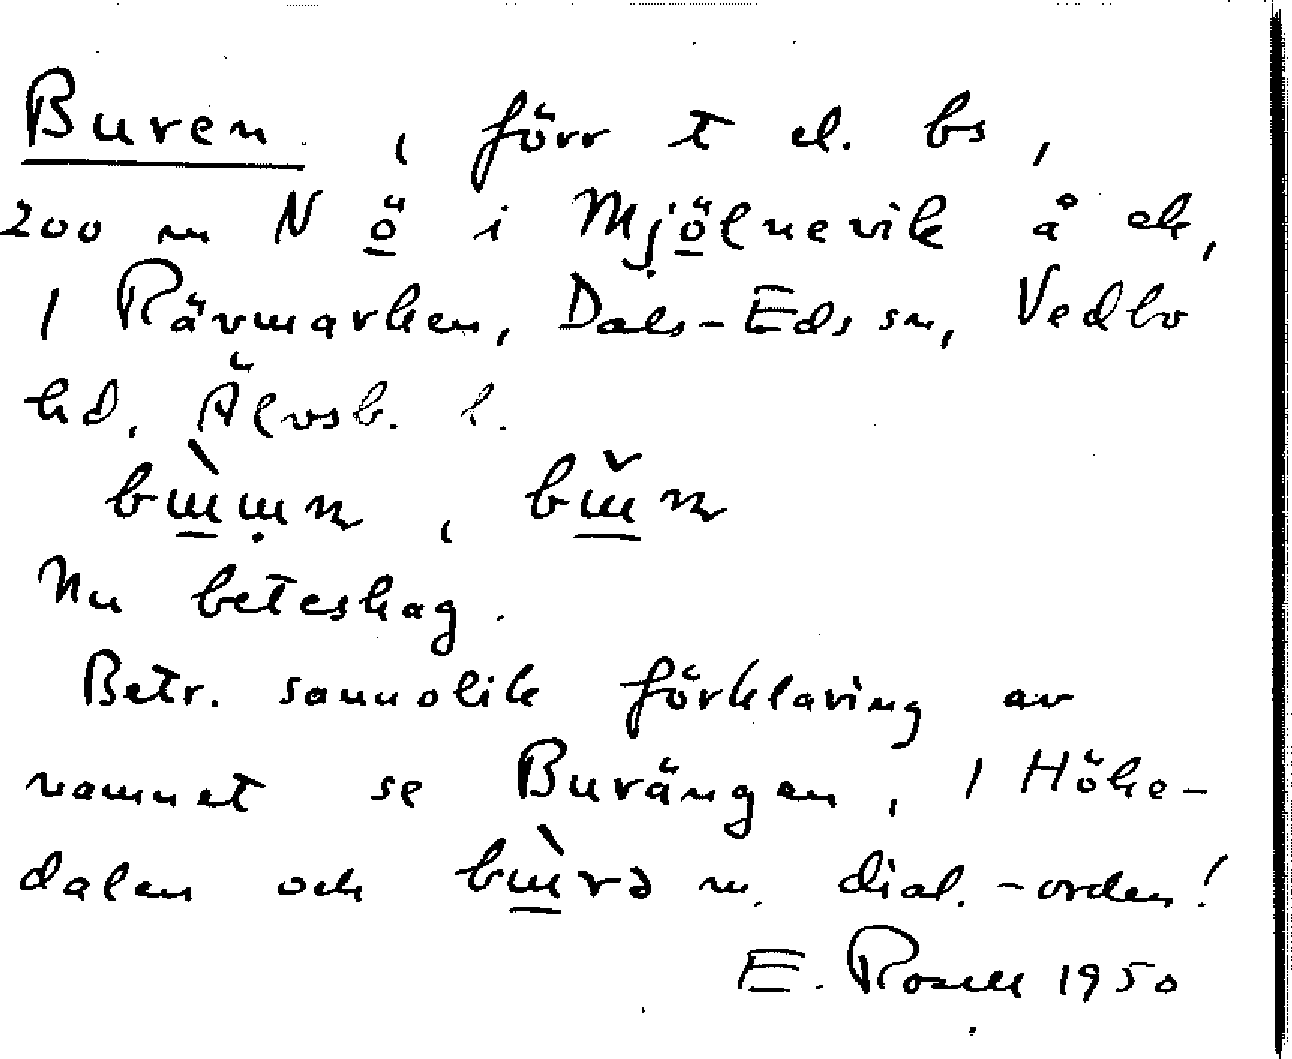 Buren, förr t el. bs,
200 m N ö i Mjölnevik å ek,
1 Rävmarken, Dals-Eds sn, Vedbo
hd, Älvsb. l.
Nu beteshag.
Betr. sannolik förklaring av
namnet se Burängen, 1 Höke-
dalen och n. dial.-orden!
E. Rosell 1950